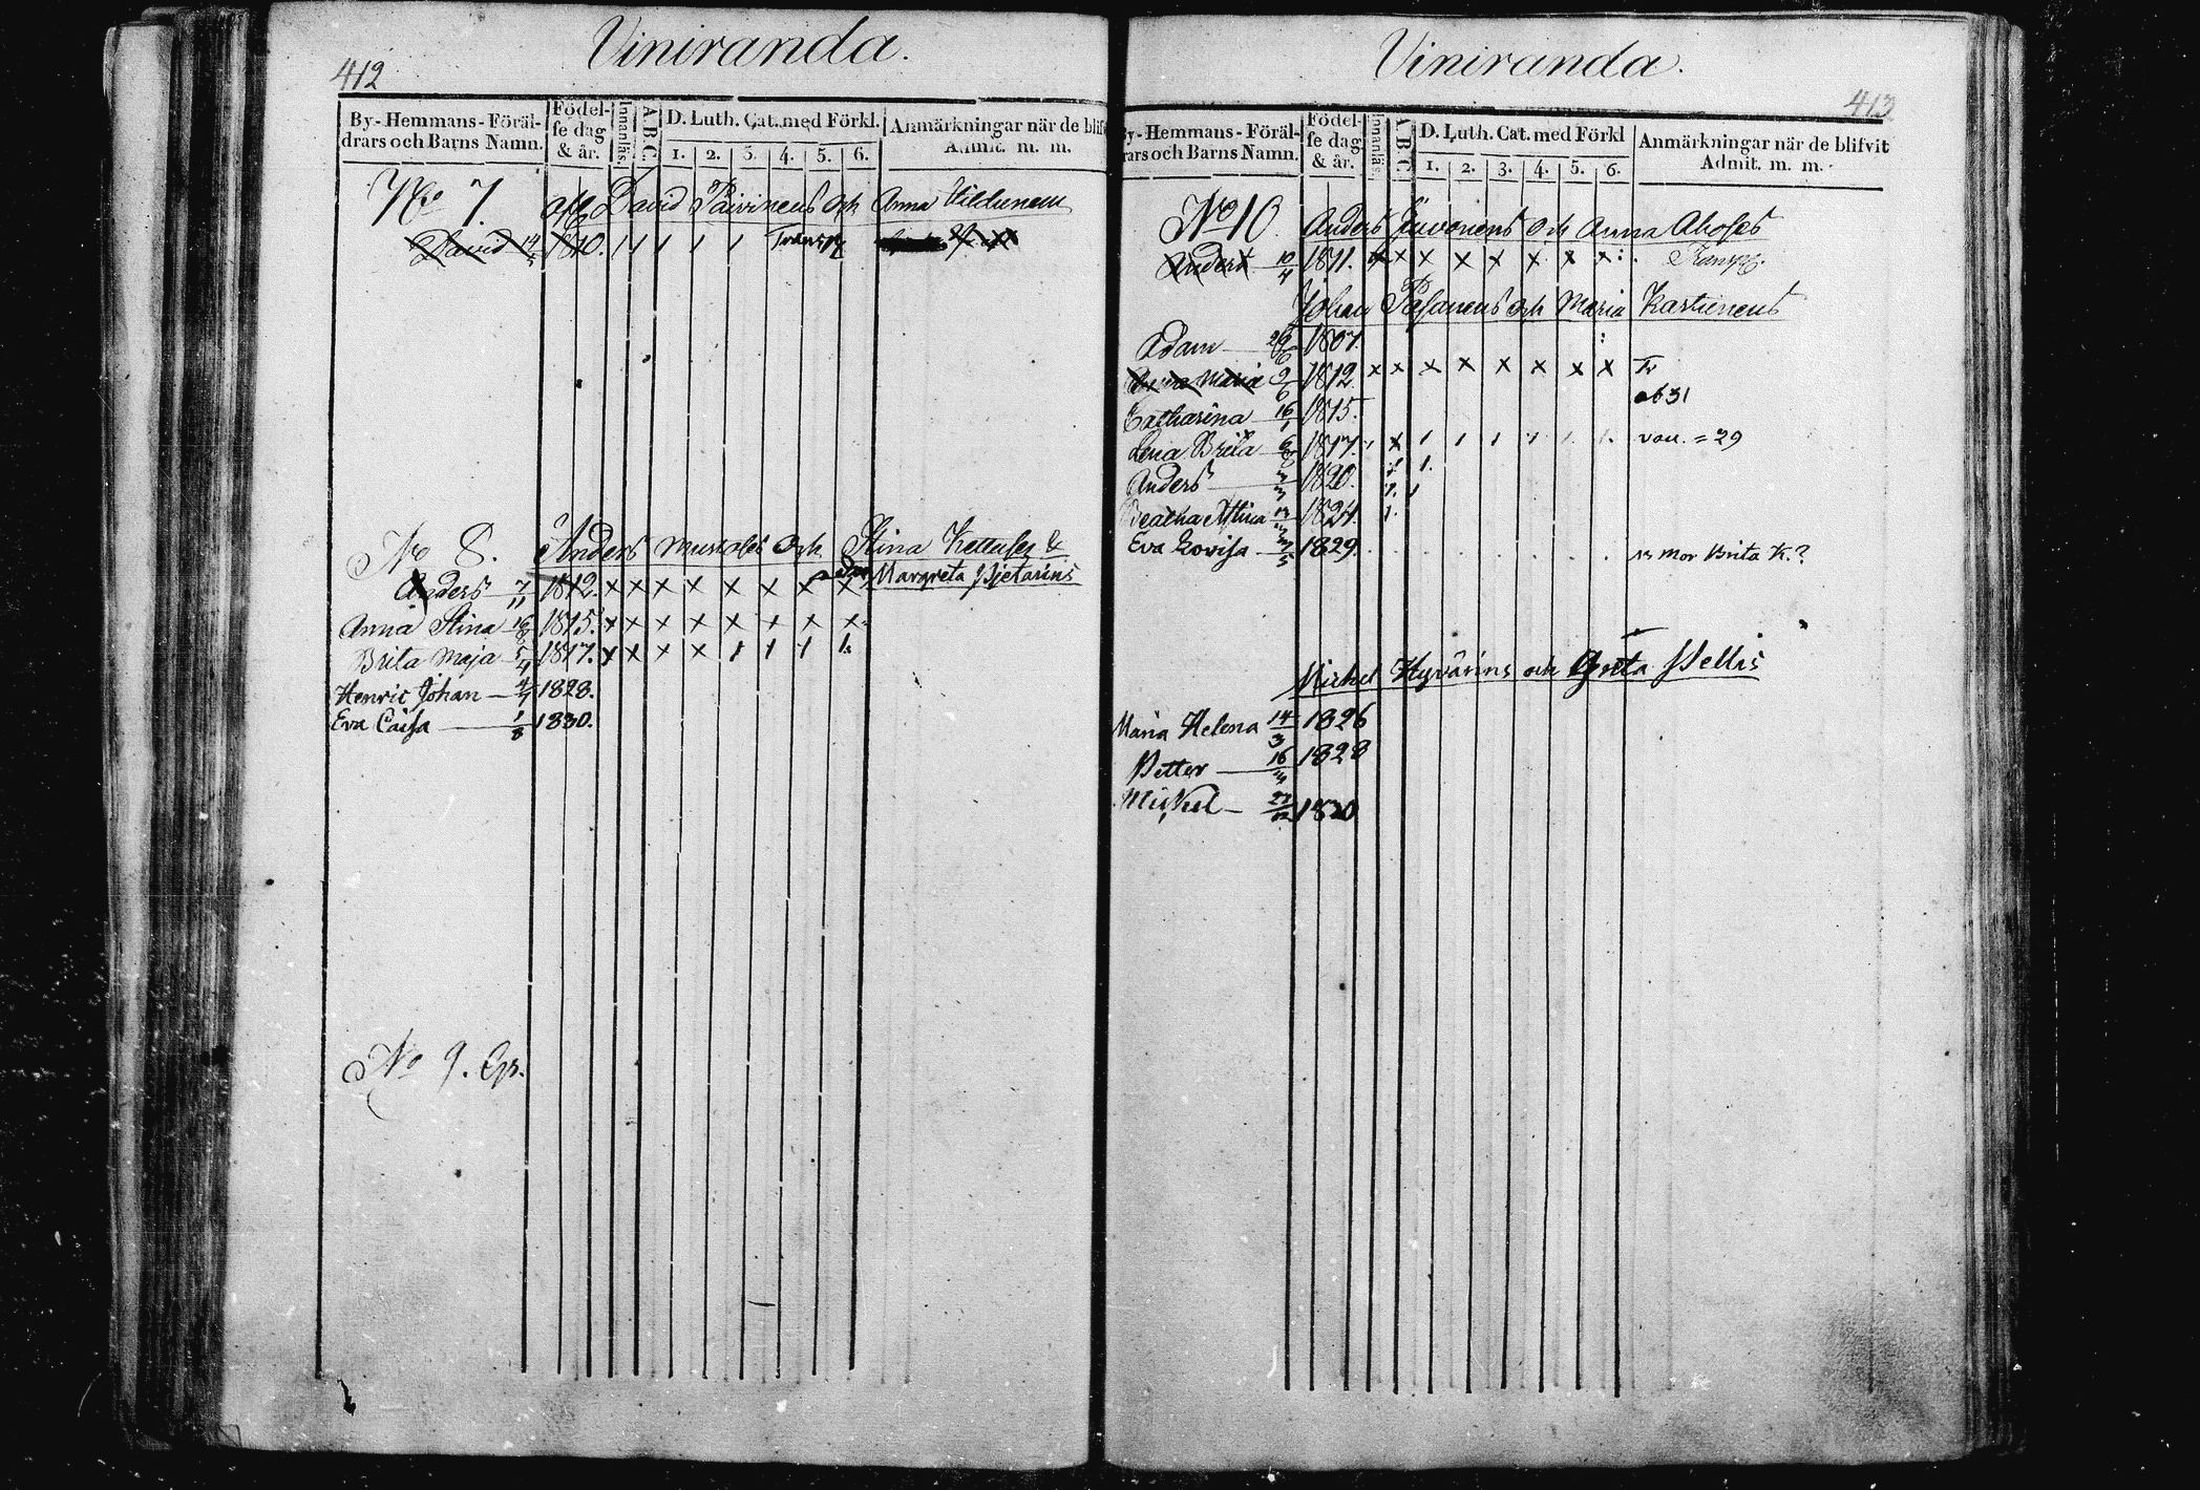 412
Viniranda.
By-Hemmans-Föräldrars och Barns Namn. Födelse dag & år. Innanläs. A.B.C. D. Luth. Cat. med Förkl. 1. 2. 3. 4. 5. 6. Anmärkningar när de blifvit Admit. m. m.
No 7. David Päivinens och Anna
David 14/5 1810. 1 1 1 1 1 Transp
No 8. Anders Mustoses och Stina Kettuses &
Margreta Hjetarins
Anders 7/11 1812. x x x x x x x x
Anna Stina 16/8 1815. x x x x x x x x
Brita Maja 5/4 1817. x x x x 1 1 1 1.
Henric Johan 4/7 1828.
Eva Caisa 1/8 1830.
No 9.
413
Viniranda.
By-Hemmans-Föräldrars och Barns Namn. Födelse dag & år. Innanläs. A.B.C. D. Luth. Cat. med Förkl 1. 2. 3. 4. 5. 6. Anmärkningar när de blifvit Admit. m. m.
No 10. Anders Juvonens och Anna Ahoses
Anders 10/4 1811. x x x x x x x x Transp.
Johan Pasanens och Maria Kastinens
Adam 1807.
Maria 1812. x x x x x x x x Tr
ab 31
Catharina 16/1 1815.
Lena Brita 6/8 1817. 1 x 1 1 1 1 1 1. = 29
Anders 1820. 1 1.
Beatha Stina 1824. 1.
Eva Lovisa 1829. Mor Brita K.?
Michel Hyvärins och Greta Hellis
Maria Helena 14/3 1826
Petter 16 1828
Michel 27/12 1830